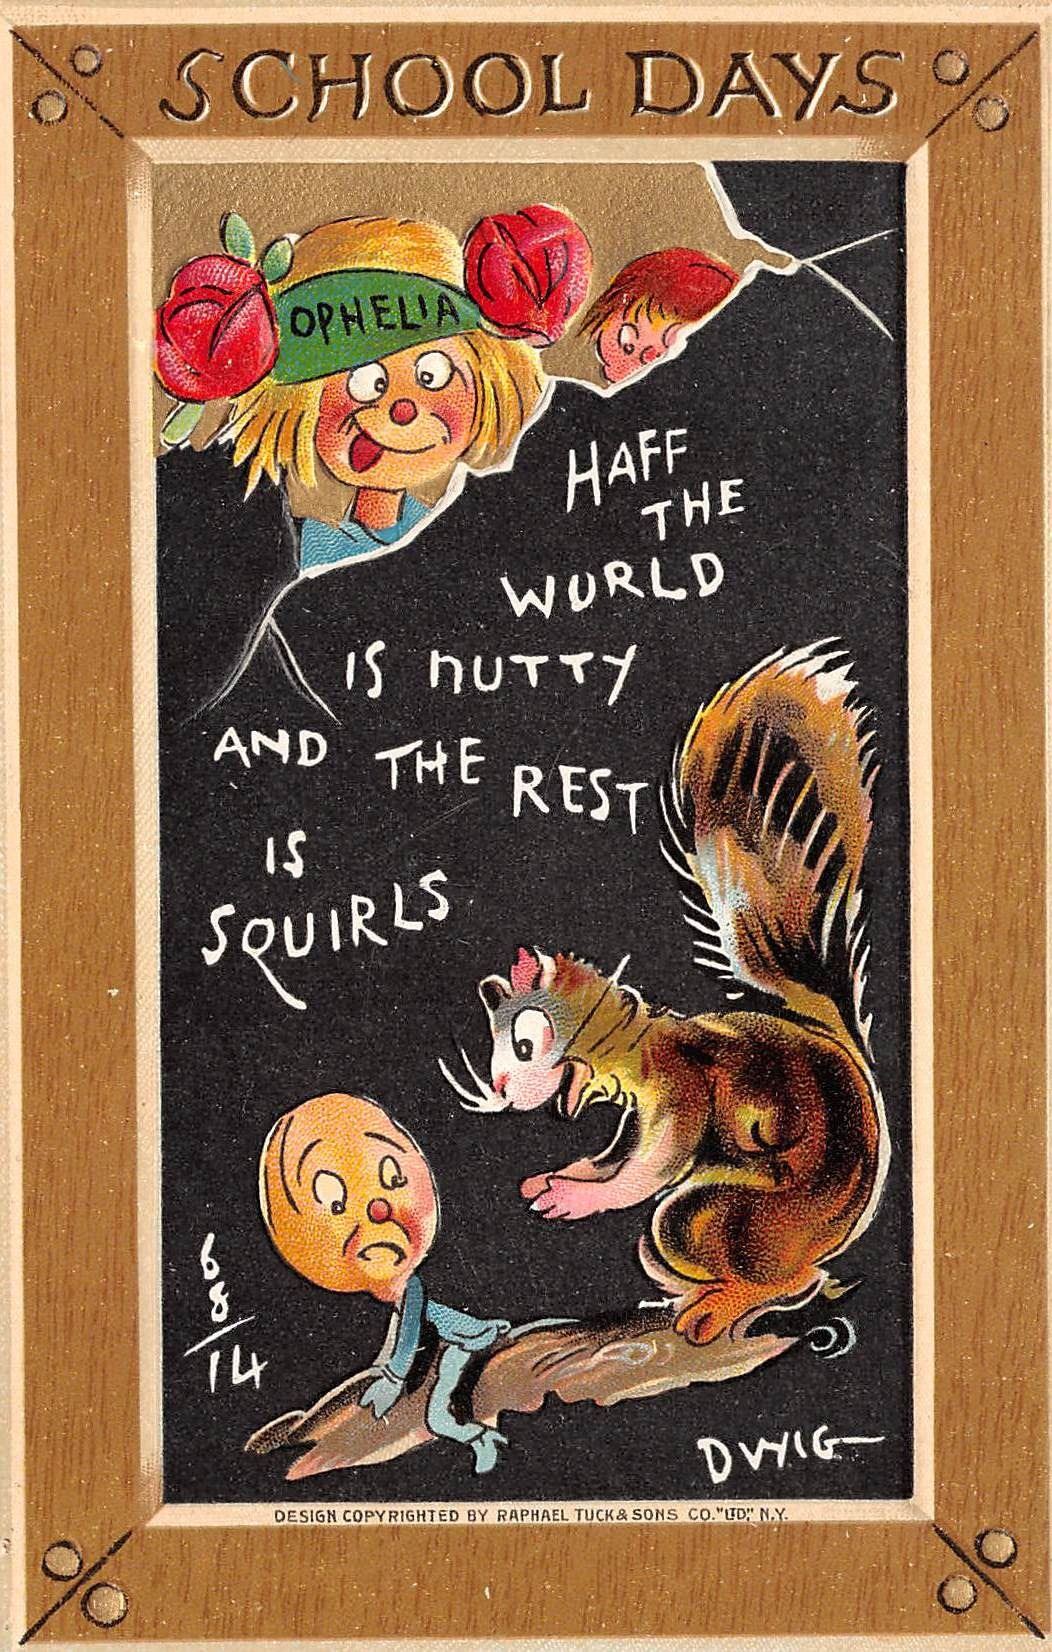 SCHOOL DAYS
OPHELIA
HAFF
THE
WURLD
IS NUTTY
AND THE REST
IS
SQUIRLS
6
8
14
DWIG
DESIGN COPYRIGHTED BY RAPHAEL TUCK & SONS CO. "LTD," N.Y.